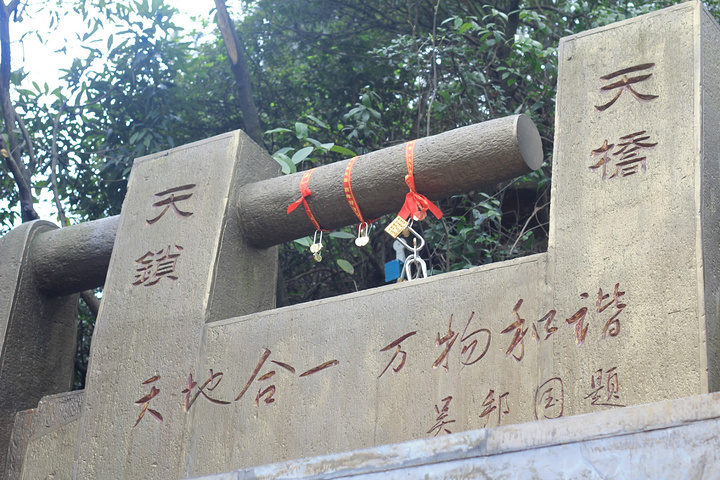 天鎖
天橋
天地合一 万物和谐
吴邦国题